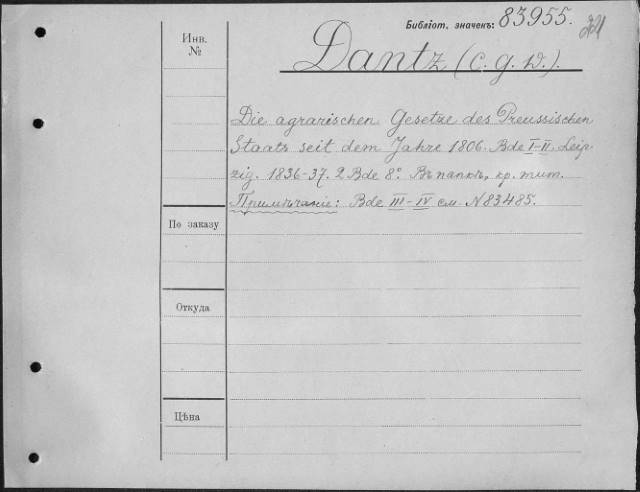 Библіот. значекъ: 83955.
Инв.
№
Dantz (C. G. W.).
Die agrarischen Gesetze des Preussischen
Staats seit dem Jahre 1806. Bde I-II. Leip-
zig. 1836-37. 2 Bde 8º. Въ папкѣ, кр. тит.
Примѣчаніе: Bde III-IV см. N 83485.
По заказу
Откуда
Цѣна